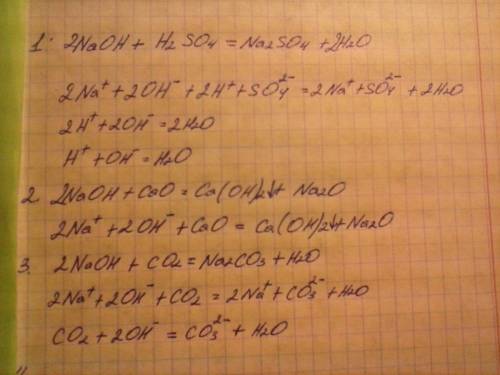 1. 2NaOH + H₂SO₄ = Na₂SO₄ + 2H₂O
2Na⁺ + 2OH⁻ + 2H⁺ + SO₄²⁻ = 2Na⁺ + SO₄²⁻ + 2H₂O
2H⁺ + 2OH⁻ = 2H₂O
H⁺ + OH⁻ = H₂O
2. 2NaOH + CaO = Ca(OH)₂↓ + Na₂O
2Na⁺ + 2OH⁻ + CaO = Ca(OH)₂↓ + Na₂O
3. 2NaOH + CO₂ = Na₂CO₃ + H₂O
2Na⁺ + 2OH⁻ + CO₂ = 2Na⁺ + CO₃²⁻ + H₂O
CO₂ + 2OH⁻ = CO₃²⁻ + H₂O